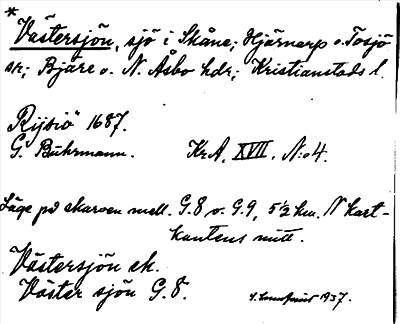 *
Västersjön, sjö i Skåne; Hjärnarp o. Tosjö
snr; Bjäre o. N. Åsbo hdr; Kristianstads l.
Rijsiö 1687.
G. Buhrmann. Kr.A. XVII. N:o 4.
Läge på ekarven mell. G.8 o. G.9, 5½ km. N kart-
kantens mitt.
Västersjön ek.
Väster sjön G.8.
1937.